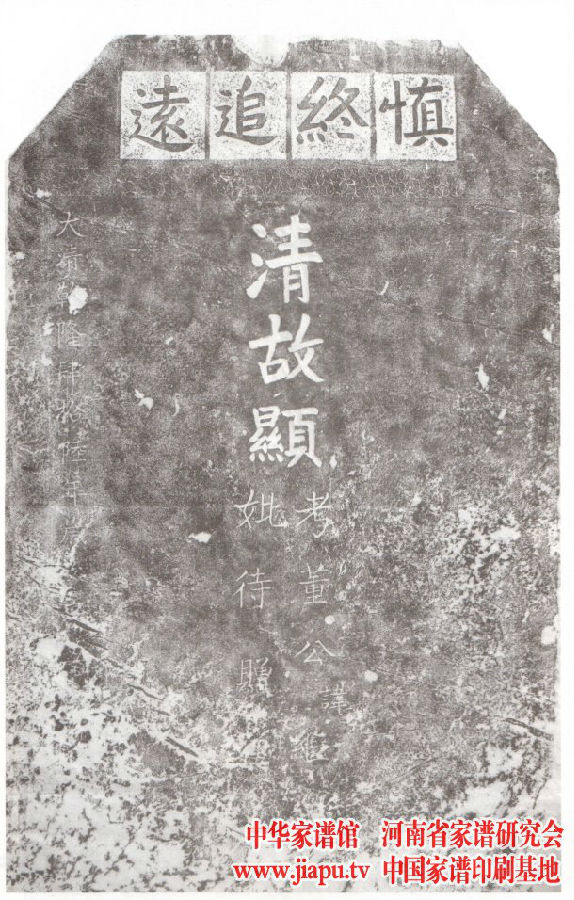 慎終追遠
清故顯
考董公諱
妣待贈
大清乾隆肆拾陸年歲
中华家谱馆 河南省家谱研究会
www.jiapu.tv 中国家谱印刷基地